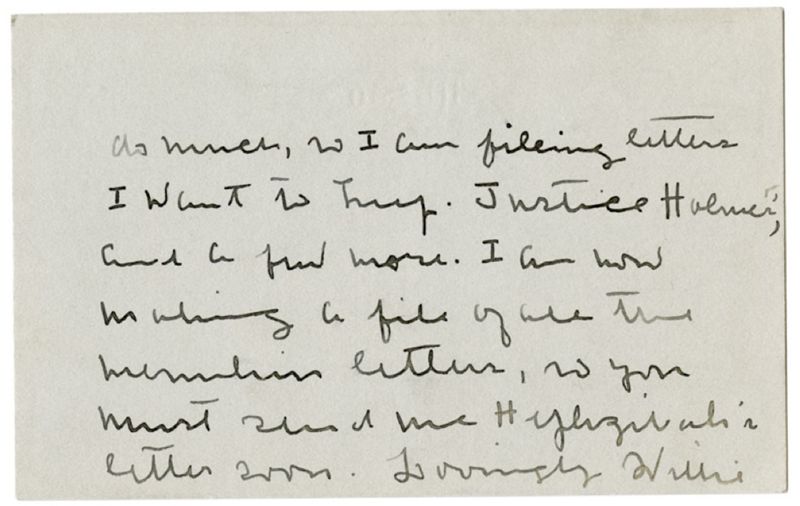 do much, so I am filing letters
I want to keep. Justice Holmes',
and a few more. I am now
making a file of all the
Menuhin letters, so you
must send me Hephzibah's
letter soon. Lovingly Willie